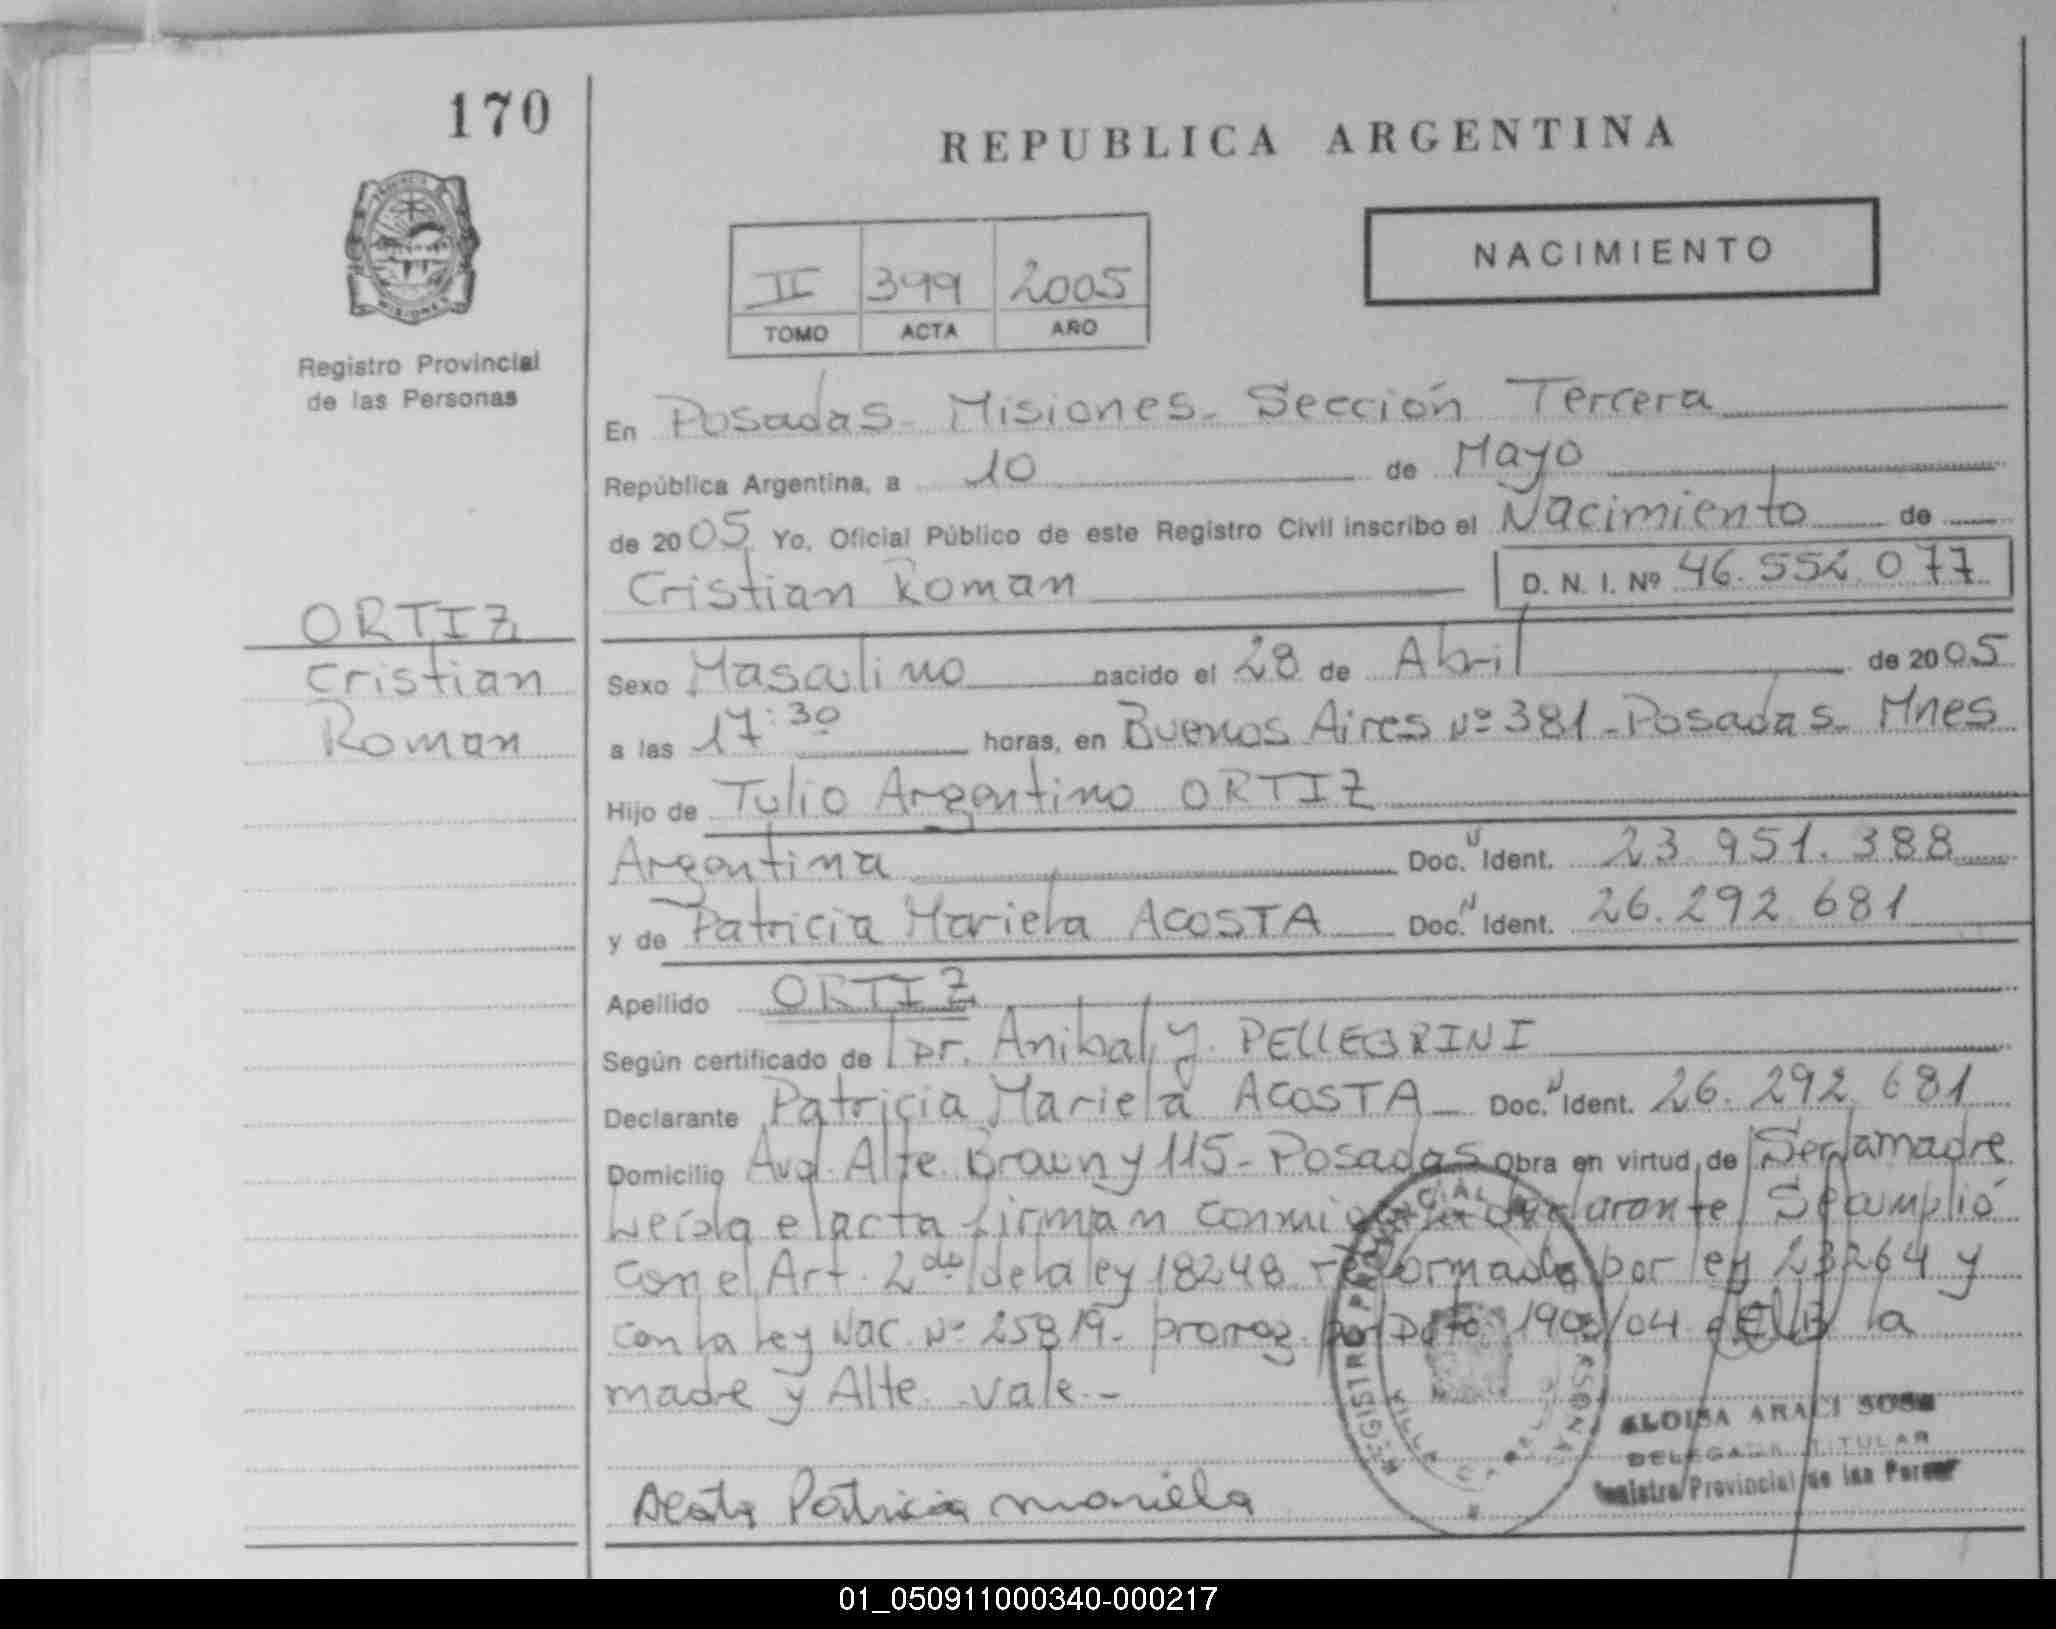 170
REPUBLICA ARGENTINA
NACIMIENTO
II 399 2005
TOMO ACTA AÑO
Registro Provincial
de las Personas
En Posadas - Misiones - Sección Tercera
República Argentina, a 10 de Mayo
de 2005 Yo, Oficial Público de este Registro Civil inscribo el Nacimiento de
Cristian Roman D. N. I. Nº 46.552.077
ORTIZ
Cristian
Roman
Sexo Masculino nacido el 28 de Abril de 2005
a las 17:30 horas, en Buenos Aires Nº 381 - Posadas - Mnes
Hijo de Tulio Argentino ORTIZ
Argentina Doc. N Ident. 23.951.388
y de Patricia Mariela ACOSTA Doc. N Ident. 26.292.681
Apellido ORTIZ
Según certificado de Dr. Anibal J. PELLEGRINI
Declarante Patricia Mariela ACOSTA Doc. N Ident. 26.292.681
Domicilio Avd. Alte. Brown y 115 - Posadas Obra en virtud de Ser la madre
Leída el acta firman conmigo declarante Se cumplió
con el Art. 2do de la ley 18248 reformado por ley 23264 y
con la ley Nac. Nº 25819 - prorrog. por Dcto. 190 /04 la
madre y Alte. vale.-
REGISTRO PROVINCIAL PERSONAS
VILLA
ELOISA ARACI SOSA
DELEGADA TITULAR
Registro Provincial de las Person
Acosta Patricia mariela
01_050911000340-000217